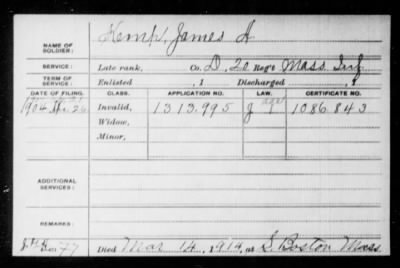 NAME OF SOLDIER: Kemp, James A
SERVICE: Late rank, Co. D, 20 Reg't Mass. Inf
TERM OF SERVICE: Enlisted , 1 Discharged , 1
DATE OF FILING. CLASS. APPLICATION NO. LAW. CERTIFICATE NO.
1904 26 Invalid, 1313.995 age 1086.843
Widow,
Minor,
ADDITIONAL SERVICES:
REMARKS:
77 Died Mar 14, 1914, at S. Boston Mass.